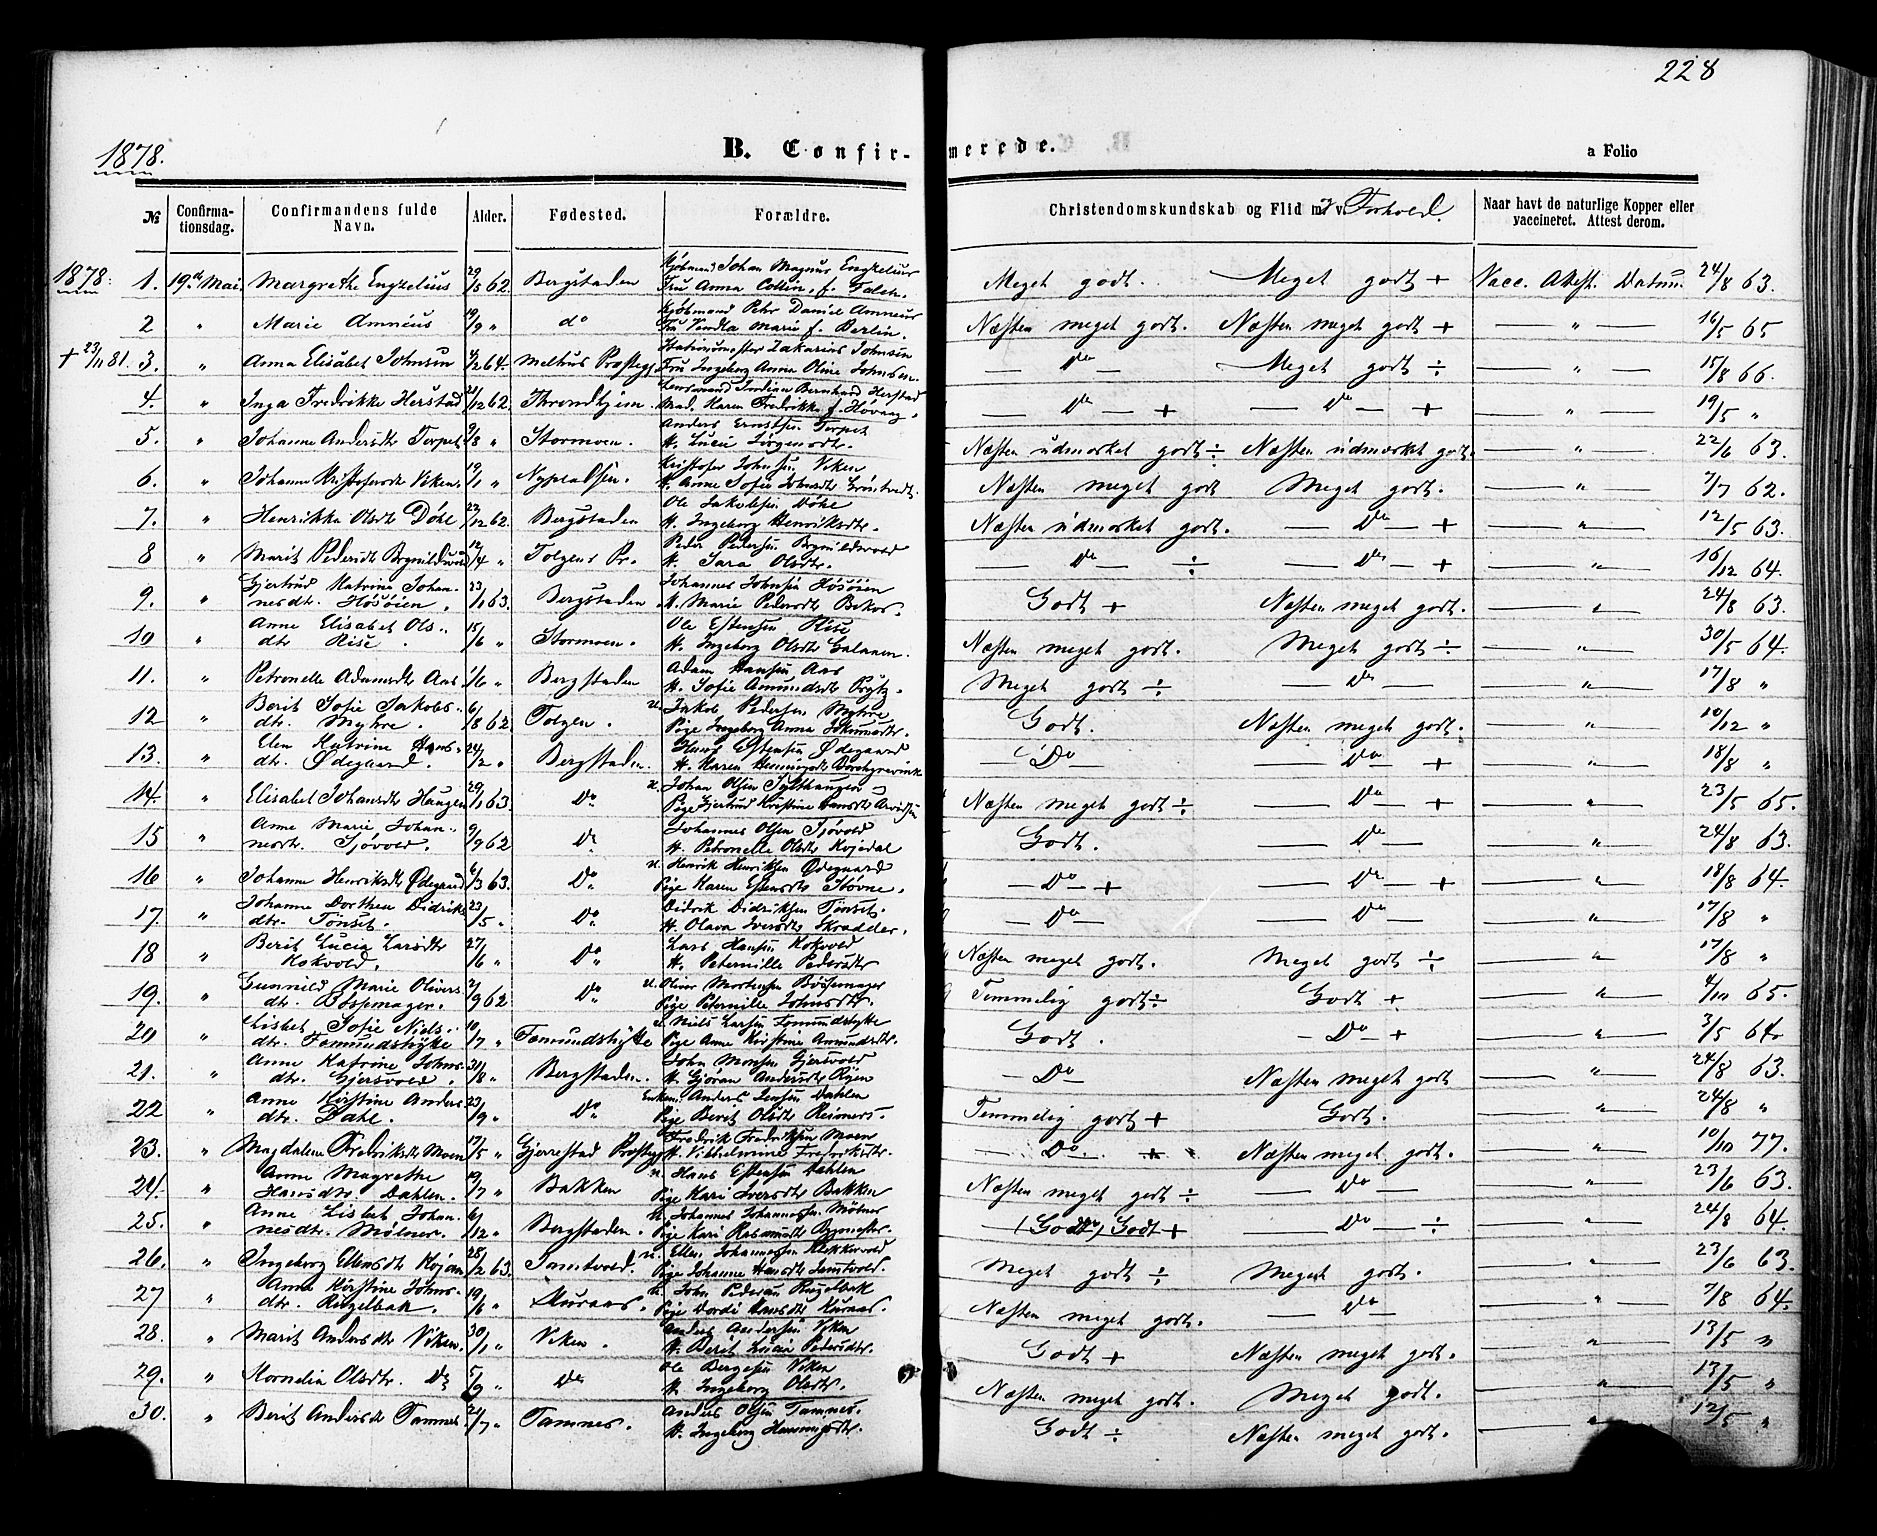 228
1878.
B. Confirmerede.
a Folio
№
Confirmationsdag.
Confirmandens fulde Navn.
Alder.
Fødested.
Forældre.
Christendomskundskab og Flid m. v. Forhold.
Naar havt de naturlige Kopper eller vaccineret. Attest derom.
1878. 1. 19de Mai. Margrethe Engzelius 29/5 62. Bergstaden Kjøbmand Johan Magnus Engzelius Fru Anna Cottin, f. Falch. Meget godt. Meget godt + Vacc. Attest. Datum. 24/8 63.
2 " Marie Amnéus 19/9 " do Kjøbmand Peter Daniel Amneus Fru Vendla Marie f. Berlin. Næsten meget godt. Næsten meget godt + — " — 16/5 65
+ 23/11 81. 3. " Anna Elisabet Johnsen 4/2 64. Melhus Præstegj. Stationsmester Zakarias Johnsen Fru Ingeborg Anna Oline Johnsen. — Do Meget godt ÷ — " — 15/8 66.
4. " Inga Fredrikke Herstad 21/12 62. Throndhjem. Lensmand Jordian Bernhard Herstad Mad. Karen Fredrikke f. Høvaag. — Do — + — Do — + — " — 19/5 "
5. " Johanne Andersdtr Torpet 9/8 " Stormoen. Anders Ernstsen Torpet H. Lucie Jørgensdtr. Næsten udmærket godt ÷ Næsten udmærket godt. — " — 22/6 63.
6. " Johanne Kristofersdtr Viken. 19/1 " Nypladsen. Kristofer Johnsen Viken H. Anne Sofie Johnsdtr Grøntvedt. Næsten meget godt Meget godt. — " — 7/7 62.
7. " Henrikka Olsdtr Døhl 27/12 62. Bergstaden Ole Jakobsen Døhl H. Ingeborg Henriksdtr. Næsten udmærket godt. — Do — + — " — 12/5 63.
8 " Marit Pedersdtr Brynildsvold 12/4 " Tolgens Pr. Peder Pedersen Brynildsvold H. Sara Olsdtr. — Do — ÷ — Do — + — " — 16/12 64.
9. " Gjertrud Katrina Johannesdtr. Høsøien. 23/1 63. Bergstaden Johannes Johnsen Høsøien H. Marie Pedersdtr Bekos. Godt + Næsten meget godt. — " — 24/8 63.
10 " Anne Elisabet Olsdtr Rise. 15/6 " Stormoen. Ole Estensen Rise H. Ingeborg Olsdtr Galaaen. Næsten meget godt. Meget godt ÷ — " — 30/5 64.
11. " Petronelle Adamsdtr Aas 1/6 " Bergstaden Adam Hansen Aas H. Sofie Amundsdtr Prytz. Meget godt ÷ — Do — — " — 17/8 "
12 " Berit Sofie Jakobsdtr. Myhre. 6/8 62. Tolgen. u. Jakob Pedersen Myhre Pige Ingeborg Anna Jokumsdtr. Godt. Næsten meget godt. — " — 10/12 "
13. " Elen Katrine Hansdtr. Ødegaard. 24/2 " Bergstaden. Hans Estensen Ødegaard H. Karen Henningsdtr Borchgrevink — Do — — Do — + — " — 18/8 "
14. " Elisabet Johansdtr Haugen 29/1 63. Do. u. Johan Olsen Sylthaugen Pige Gjertrud Kristine Larsdtr Arvidsen Næsten meget godt ÷ — Do — + — " — 23/5 65.
15 " Anne Marie Johannesdtr. Sjøvold. 9/9 62 Do Johannes Olsen Sjøvold H. Petronelle Olsdtr Kojedal Godt. — Do — — " — 24/8 63.
16 " Johanne Henriksdtr Ødegaard 6/3 63. Do. u. Henrik Henriksen Ødegaard Pige Karen Estensdtr Støvne. — Do — + — Do — + — " — 18/8 64.
17. " Johanne Dorthea Didriksdtr. Tønset. 23/5 " Do. Didrik Didriksen Tønset. H. Olava Iversdtr Skrødder. — Do — — Do — — " — 17/8 "
18 " Berit Lucia Larsdtr Kokvold. 27/6 " Do Lars Hansen Kokvold H. Peternille Pedersdtr Næsten meget godt. Meget godt ÷ — " — 17/8 "
19. " Gunnild Marie Oliversdtr. Bøssemager. 2/9 62 Do. u. Oliver Mortensen Bøssemager Pige Peternille Johnsdtr. Temmelig godt ÷ Godt + — " — 4/10 65.
20 " Lisbet Sofie Nielsdtr. Fæmundshytte 10/7 " Fæmundshytte u. Niels Larsen Fæmundshytte Pige Anne Kirstine Amundsdtr. Godt. — Do — + — " — 3/5 64
21. " Anne Katrine Johnsdtr. Gjersvold. 31/8 " Bergstaden. John Monsen Gjersvold H. Gjøran Andersdtr Ryen — Do — Næsten meget godt — " — 24/8 63.
22 " Anne Kirstine Andersdtr. Dahl. 23/9 " Do. Enkem. Anders Jensen Dahlen Pige Berit Olsdtr Reimers. Temmelig godt + Godt. — " — 24/8 "
23. " Magdalena Fredriksdtr Moen 17/5 " Gjerrestad Præstegj. Fredrik Fredriksen Moen H. Vilhelmine Fredriksdtr. — Do. + Næsten meget godt. — " — 10/10 77.
24. " Anne Magrethe Hansdtr Dahlen. 19/7 " Bakken u. Hans Estensen Dahlen Pige Kari Iversdtr Bakken Næsten meget godt ÷ — Do — — " — 23/6 63.
25. " Anne Lisbet Johannesdtr. Mølner. 6/12 " Bergstaden. u. Johannes Johannessen Mølner Pige Kari Rasmusdtr Bygmester. Godt + — Do — ÷ — " — 24/8 64.
26. " Ingeborg Ellensdtr Kojan 28/2 63. Jamtvold. u. Ellen Johannessen Klokkervold Pige Johanne Hansdtr Jamtvold. Meget godt ÷ Meget godt. — " — 23/6 63.
27 " Anne Kirstine Johnsdtr. Rugelbak. 19/6 " Kuraas. u. John Pedersen Rugelbak Pige Dordi Hansdtr Kuraas. Næsten meget godt. — Do — — " — 7/8 64.
28. " Marit Andersdtr Viken. 30/1 " Viken. Anders Andersen Viken H. Berit Lucie Pedersdtr. Godt + Næsten meget godt. — " — 13/5 "
29. " Kornelia Olsdtr. Do 5/9 " Do Ole Bergesen Viken H. Ingeborg Olsdtr. Næsten meget godt. Meget godt. — " — 13/5 "
30. " Berit Andersdtr Tamnes. 24/7 " Tamnes. Anders Olsen Tamnes. H. Ingeborg Henningsdtr. Godt ÷ Næsten meget godt. — " — 12/5 "